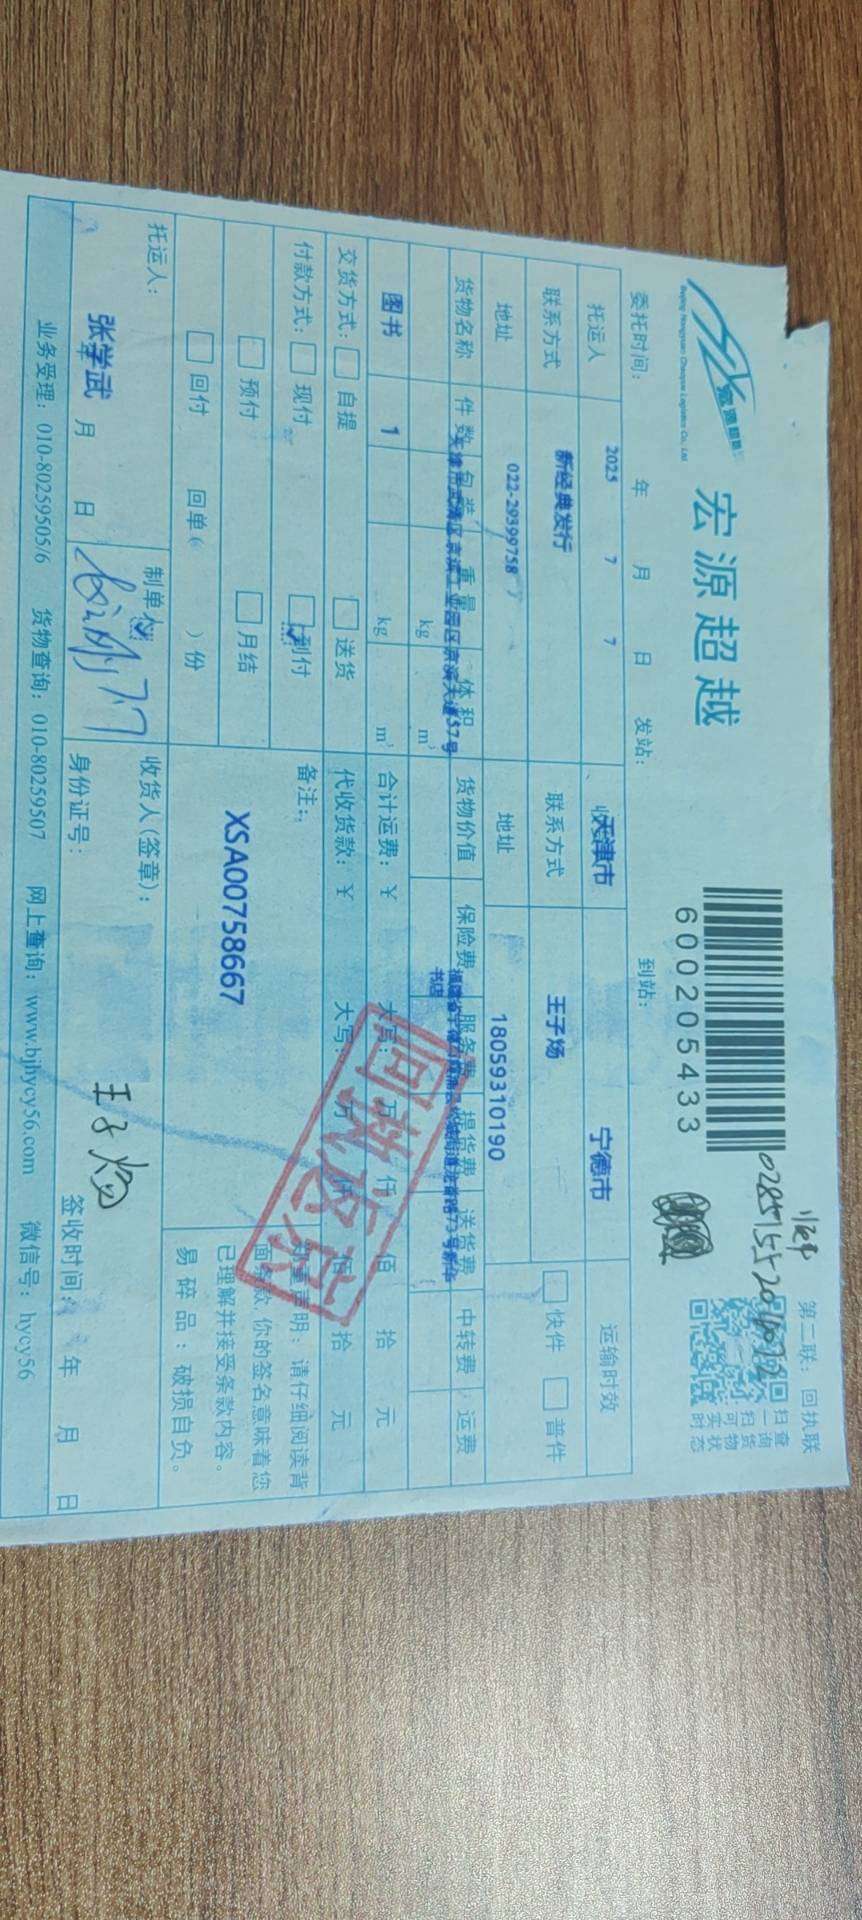 宏源超越
Beijing Hongyuan Chaoyue Logistics Co., Ltd.
600205433
第二联：回执联
扫一扫可实时
查询货物状态
委托时间： 2025 年 7 月 7 日 发站： 天津市 到站： 宁德市
托运人 新经典发行 王子炀 运输时效
联系方式 022-29399758 联系方式 18059310190 快件 普件
地址 天津市武清区京滨工业园区京滨大道57号 地址 福建省宁德市霞浦县松城街道龙首路73号新华书店
货物名称 件数 包装 重量 体积 货物价值 保险费 服务费 提货费 送货费 中转费 运费
kg m³
图书 1 kg m³ 合计运费：￥ 大写： 万 仟 佰 拾 元
交货方式： 自提 送货 代收货款：￥ 大写： 万 仟 佰 拾 元
付款方式： 现付 到付 备注：
预付 月结 XSA00758667
回付 回单（ ）份
郑重声明：请仔细阅读背
面条款，你的签名意味着您
已理解并接受条款内容。
易碎品：破损自负。
回执返京
托运人： 张学武 月 日 制单人 7.7 收货人(签章)： 王子炀
身份证号： 签收时间： 年 月 日
业务受理：010-80259505/6 货物查询：010-80259507 网上查询：www.bjhycy56.com 微信号：hycy56